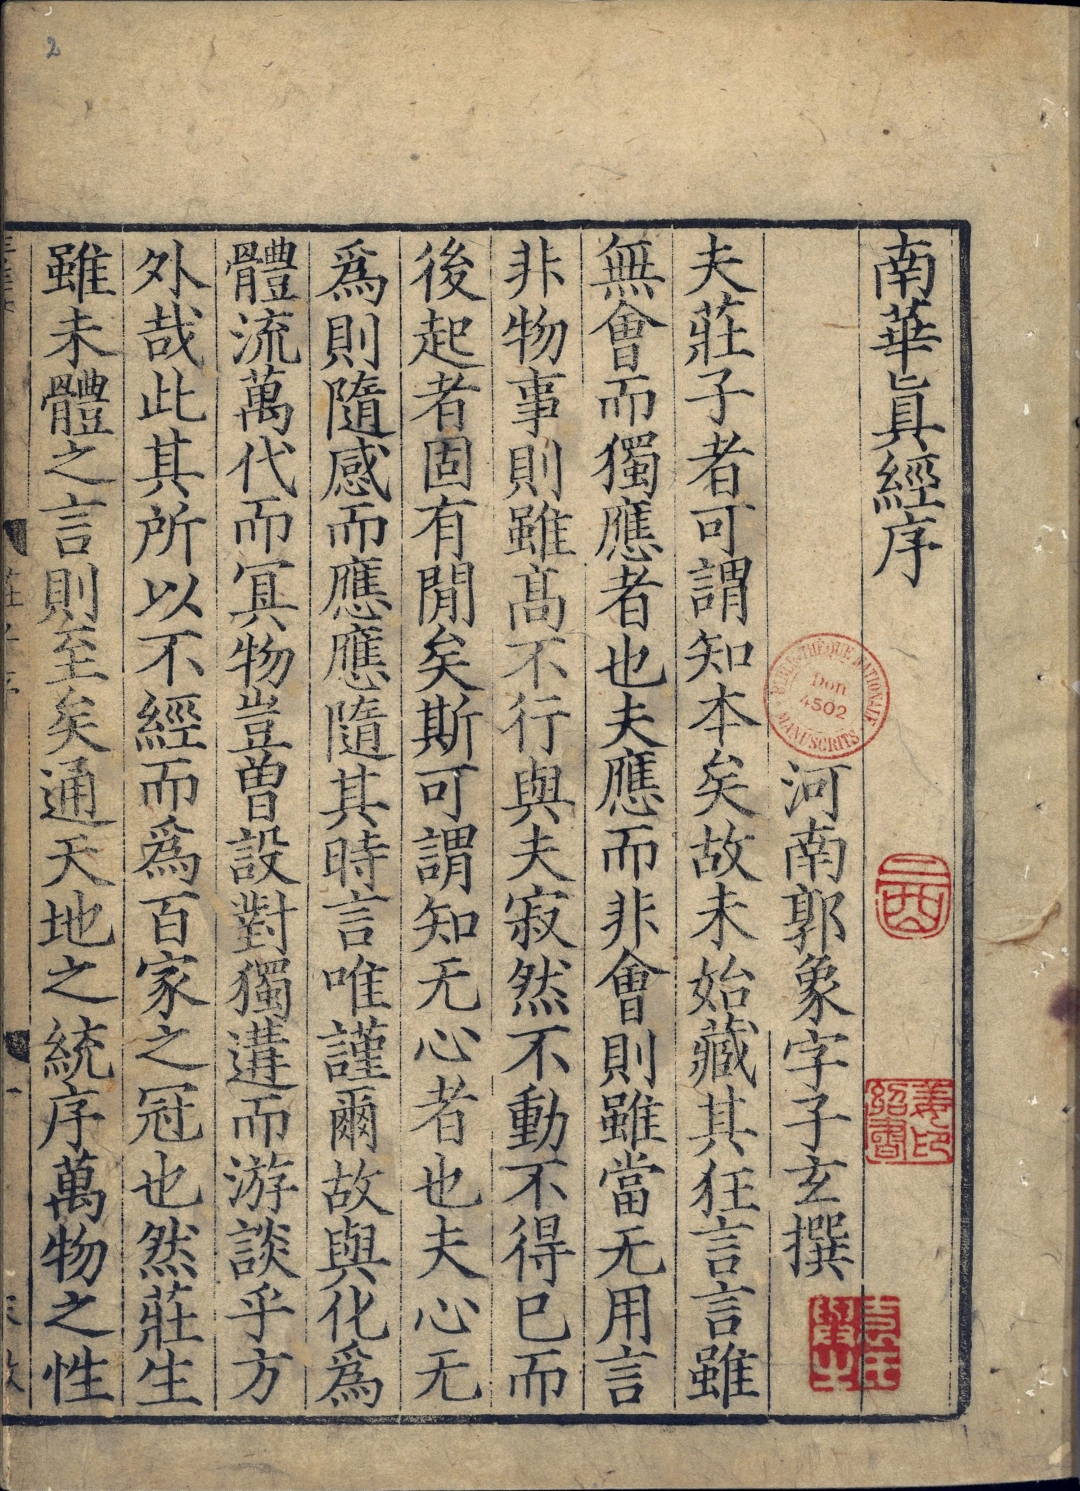 2
南華眞經序
河南郭象字子玄撰
夫莊子者可謂知本矣故未始藏其狂言言雖
無會而獨應者也夫應而非會則雖當无用言
非物事則雖高不行與夫寂然不動不得已而
後起者固有閒矣斯可謂知无心者也夫心无
爲則隨感而應應隨其時言唯謹爾故與化爲
體流萬代而冥物豈曽設對獨遘而游談乎方
外哉此其所以不經而爲百家之冠也然莊生
雖未體之言則至矣通天地之統序萬物之性
BIBLIOTHÈQUE NATIONALE
Don
4502
MANUSCRITS
三西
姜印
紹書